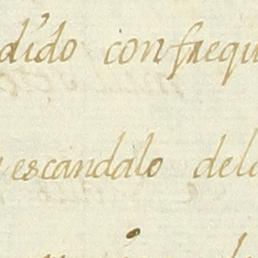 dido con frequ
escandalo dela